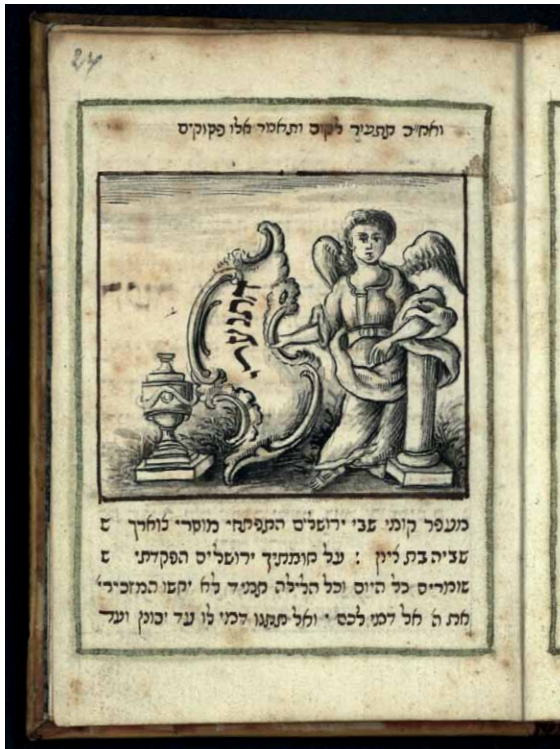 24
ואח״כ לקום ותאמר אלו פסוקים
התנערי
מעפר קומי שבי ירושלים התפתחי מוסרי צוארך ש
שביה בת ציון : על חומתיך ירושלים הפקדתי ש
שומרים כל היום וכל הלילה תמיד לא יחשו המזכירי׳
את ה אל דמי לכם ׳ ואל תתנו דמי לו עד יכונן ועד